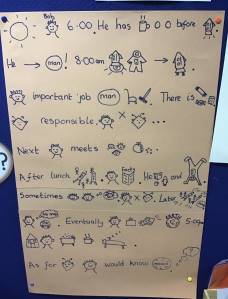 Bob
6:00. He has before
He man! 8:00am
important job man There is
responsible. X ...
Next meets
After lunch . He and
Sometimes X. Later,
. Eventually 5:00pm
As for would know